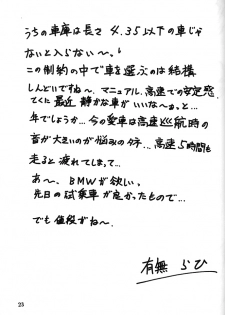 うちの車庫は長さ 4.35以下の車じゃ
ないと入らない〜。
この制約の中で車を選ぶのは結構
しんどいですね〜、マニュアル、高速での安定感
てくに最近 静かな車がいいな〜ぁっと…
年でしょうか…今の愛車は高速巡航時の
音が大きいのが悩みのタネ…高速5時間も
走ると疲れてしまって…
あ〜、BMWが欲しい。
先日の試乗車が良かったもので…
でも値段がね〜
有無らひ
25